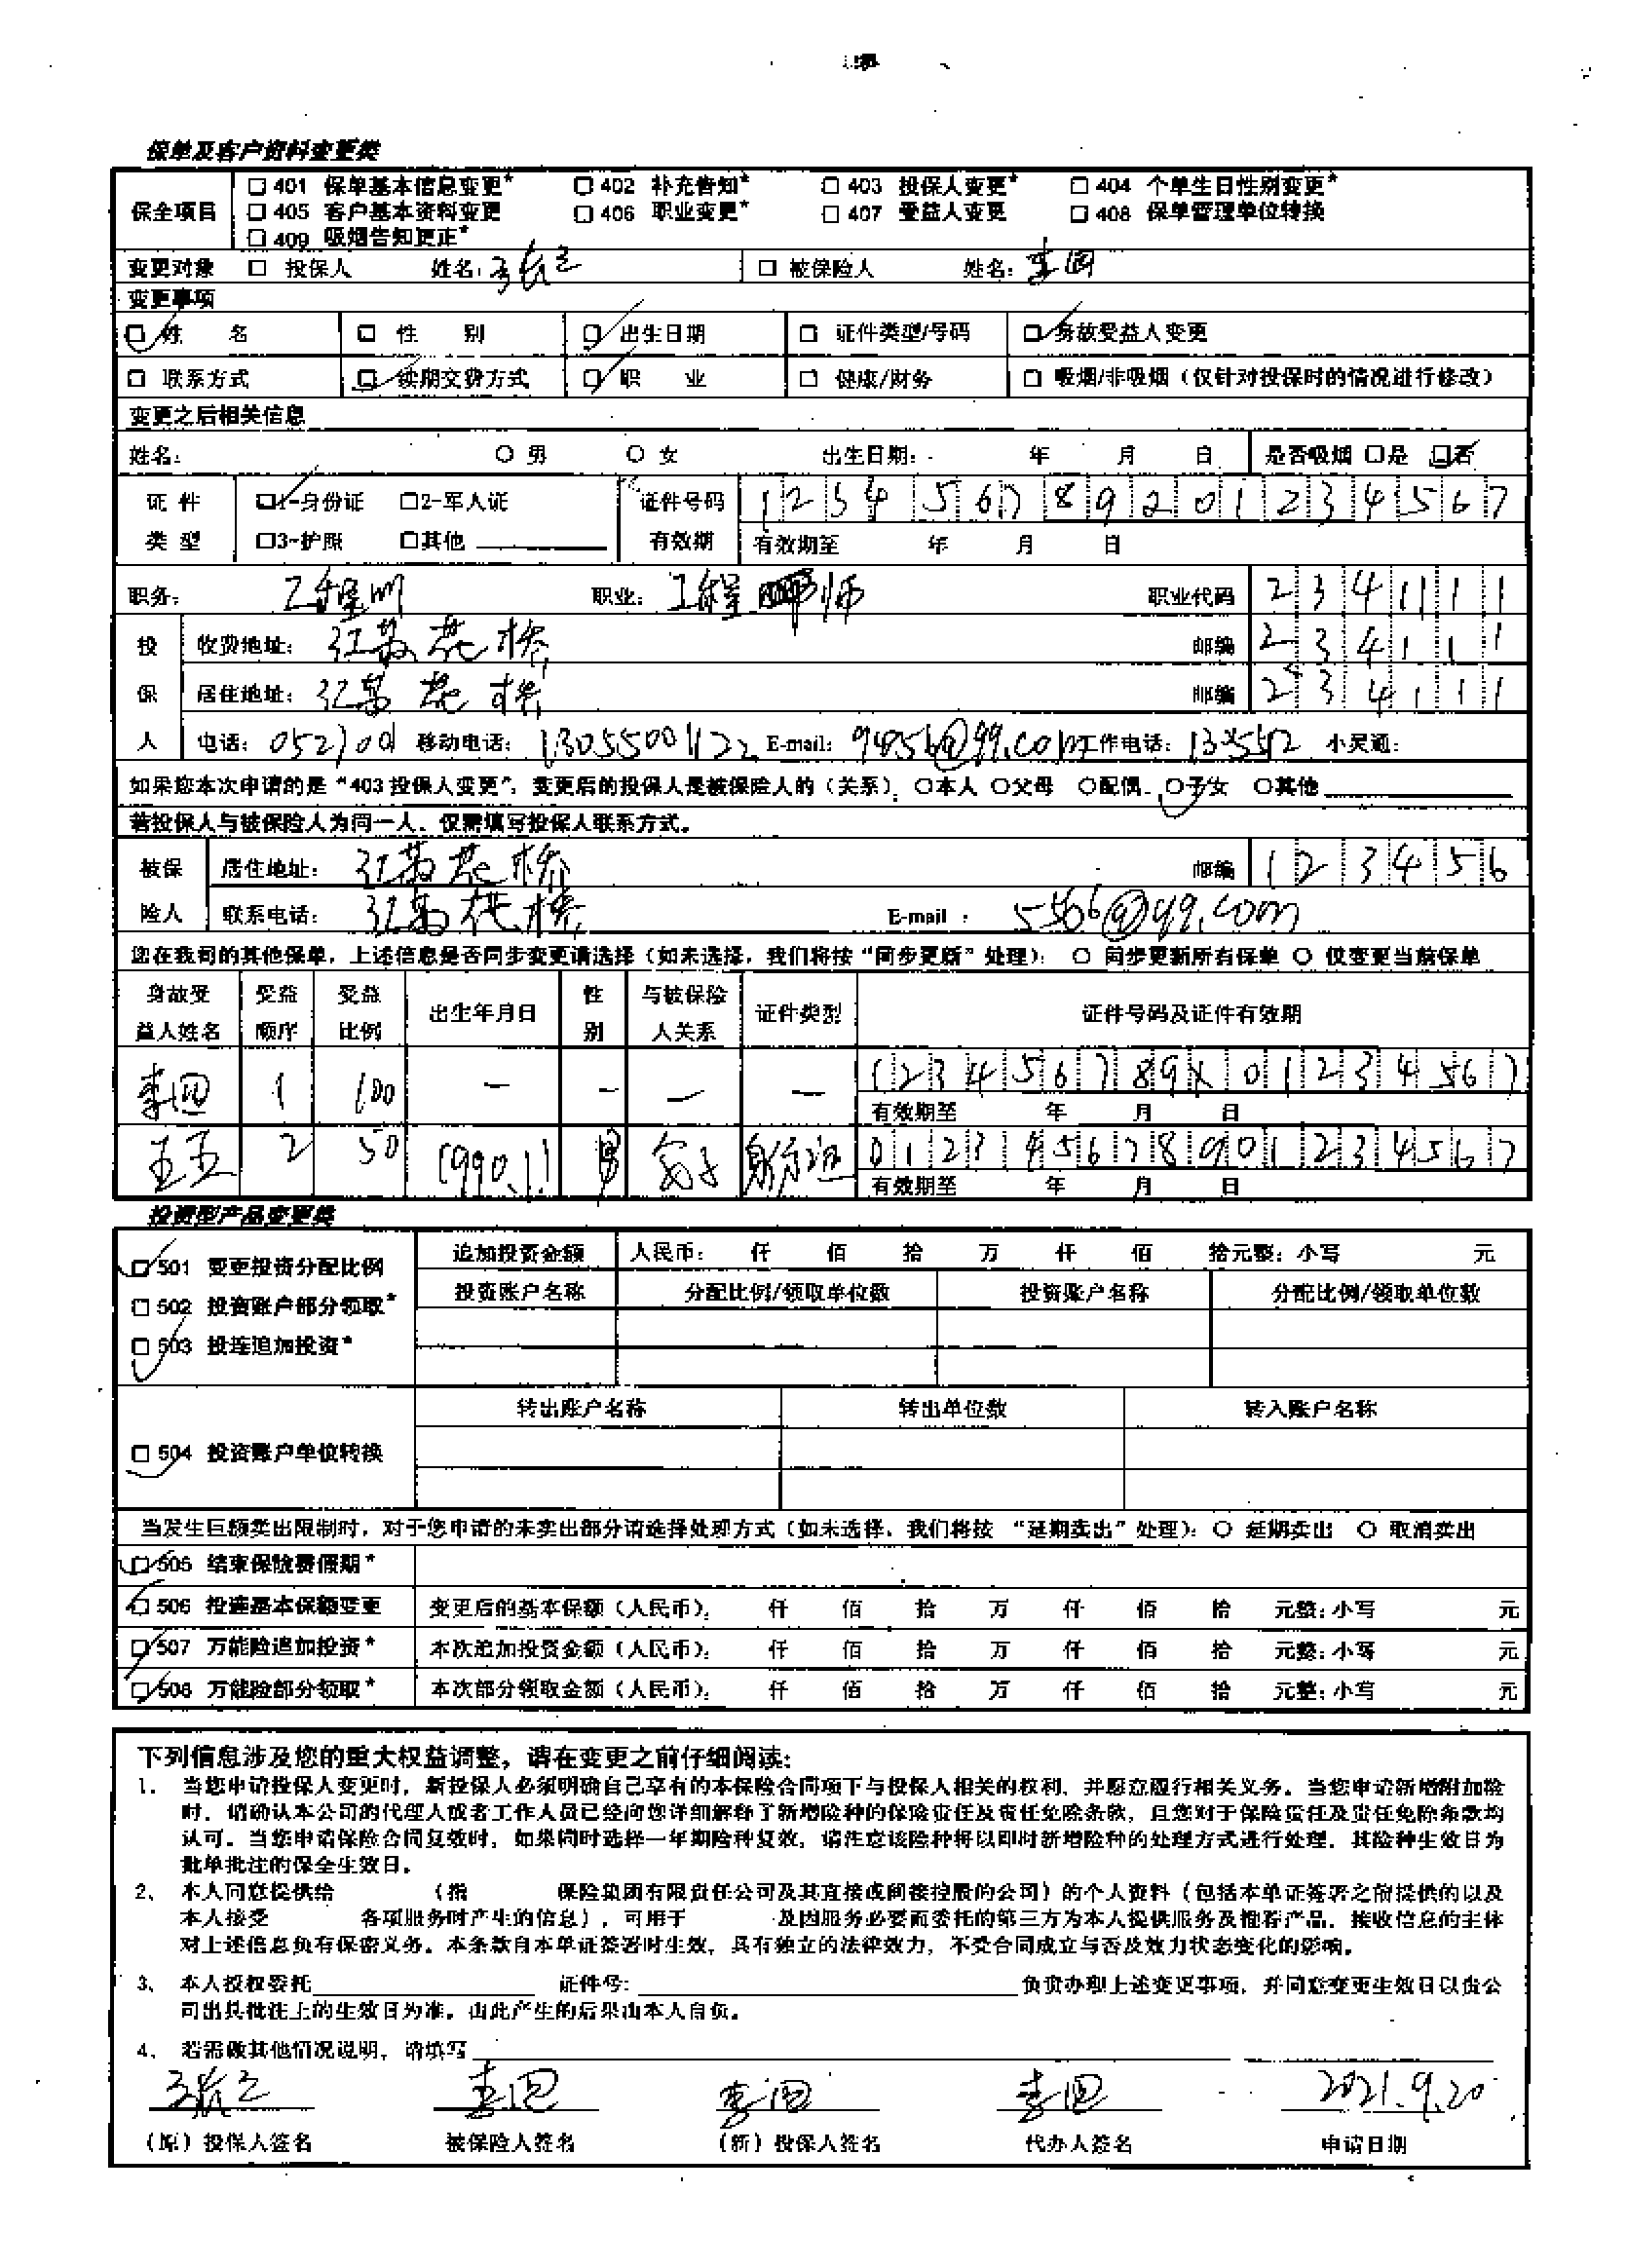 保单及客户资料变更类
保全项目 □ 401 保单基本信息变更* □ 402 补充告知* □ 403 投保人变更* □ 404 个单生日性别变更*
□ 405 客户基本资料变更 □ 406 职业变更* □ 407 受益人变更 □ 408 保单管理单位转换
□ 409 吸烟告知更正*
变更对象 □ 投保人 姓名: □ 被保险人 姓名: 李四
变更事项
□ 姓 名 □ 性 别 □ 出生日期 □ 证件类型/号码 □ 身故受益人变更
□ 联系方式 □ 续期交费方式 □ 职 业 □ 健康/财务 □ 吸烟/非吸烟（仅针对投保时的情况进行修改）
变更之后相关信息
姓名: ○ 男 ○ 女 出生日期: 年 月 日 是否吸烟 □是 □否
证 件 □1-身份证 □2-军人证 证件号码 1 2 3 4 5 6 7 8 9 2 0 1 2 3 4 5 6 7
类 型 □3-护照 □其他 有效期 有效期至 年 月 日
职务: 工程师 职业: 工程 师 职业代码 2 3 4 1 1 1 1
投 收费地址: 江苏花桥 邮编 2 3 4 1 1 1
保 居住地址: 江苏花桥 邮编 2 3 4 1 1 1
人 电话: 移动电话: 13055001122 E-mail: @qq.com 工作电话: 小灵通:
如果您本次申请的是“403 投保人变更”，变更后的投保人是被保险人的（关系）: ○本人 ○父母 ○配偶 ○子女 ○其他
若投保人与被保险人为同一人，仅需填写投保人联系方式。
被保 居住地址: 江苏花桥 邮编 1 2 3 4 5 6
险人 联系电话: 江苏花桥 E-mail : 5566@qq.com
您在我司的其他保单，上述信息是否同步变更请选择（如未选择，我们将按“同步更新”处理）: ○ 同步更新所有保单 ○ 仅变更当前保单
身故受益人姓名 受益顺序 受益比例 出生年月日 性别 与被保险人关系 证件类型 证件号码及证件有效期
李四 1 100 — — — — 1 2 3 4 5 6 7 8 9 X 0 1 2 3 4 5 6 7
有效期至 年 月 日
王五 2 50 1990.1.1 男 身份证 0 1 2 3 4 5 6 7 8 9 0 1 2 3 4 5 6 7
有效期至 年 月 日
投资型产品变更类
□ 501 变更投资分配比例 追加投资金额 人民币: 仟 佰 拾 万 仟 佰 拾元整: 小写 元
□ 502 投资账户部分领取* 投资账户名称 分配比例/领取单位数 投资账户名称 分配比例/领取单位数
□ 503 投连追加投资*
转出账户名称 转出单位数 转入账户名称
□ 504 投资账户单位转换
当发生巨额卖出限制时，对于您申请的未卖出部分请选择处理方式（如未选择，我们将按 “延期卖出” 处理）: ○ 延期卖出 ○ 取消卖出
□ 505 结束保险费假期*
□ 506 投连基本保额变更 变更后的基本保额（人民币）: 仟 佰 拾 万 仟 佰 拾 元整: 小写 元
□ 507 万能险追加投资* 本次追加投资金额（人民币）: 仟 佰 拾 万 仟 佰 拾 元整: 小写 元
□ 508 万能险部分领取* 本次部分领取金额（人民币）: 仟 佰 拾 万 仟 佰 拾 元整: 小写 元
下列信息涉及您的重大权益调整，请在变更之前仔细阅读:
1、 当您申请投保人变更时，新投保人必须明确自己享有的本保险合同项下与投保人相关的权利，并愿意履行相关义务。当您申请新增附加险
时，请确认本公司的代理人或者工作人员已经向您详细解释了新增险种的保险责任及责任免除条款，且您对于保险责任及责任免除条款均
认可。当您申请保险合同复效时，如果同时选择一年期险种复效，请注意该险种将以即时新增险种的处理方式进行处理，其险种生效日为
批单批注的保全生效日。
2、 本人同意提供给 （指 保险集团有限责任公司及其直接或间接控股的公司）的个人资料（包括本单证签署之前提供的以及
本人接受 各项服务时产生的信息），可用于 及因服务必要而委托的第三方为本人提供服务及推荐产品。接收信息的主体
对上述信息负有保密义务。本条款自本单证签署时生效，具有独立的法律效力，不受合同成立与否及效力状态变化的影响。
3、 本人授权委托 证件号: 负责办理上述变更事项，并同意变更生效日以贵公
司出具批注上的生效日为准。由此产生的后果由本人自负。
4、 若需做其他情况说明，请填写
李四 李四 李四 2021.9.20
（原）投保人签名 被保险人签名 （新）投保人签名 代办人签名 申请日期